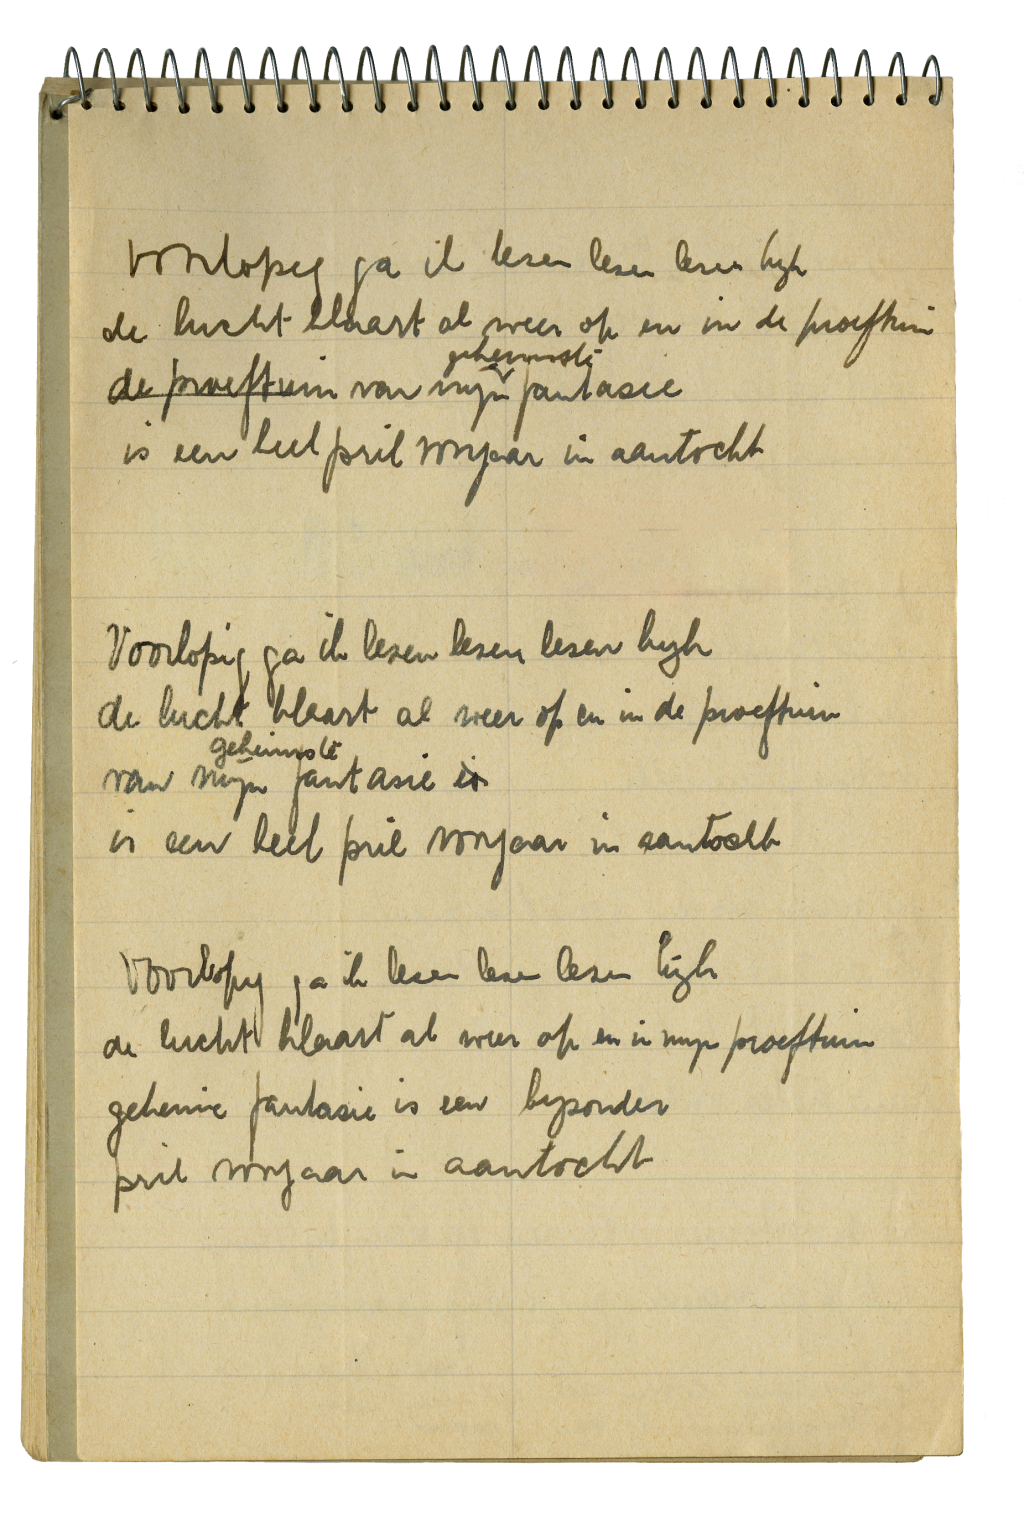 Voorlopig ga ik lezen lezen lezen kijk
de lucht klaart al weer op en in de proeftuin
geheimste
de proeftuin van mijn fantasie
is een heel pril voorjaar in aantocht
Voorlopig ga ik lezen lezen lezen kijk
de lucht klaart al weer op en in de proeftuin
geheimste
van mijn fantasie is
is een heel pril voorjaar in aantocht
Voorlopig ga ik lezen lezen lezen kijk
de lucht klaart al weer op en in mijn proeftuin
geheime fantasie is een bijzonder
pril voorjaar in aantocht